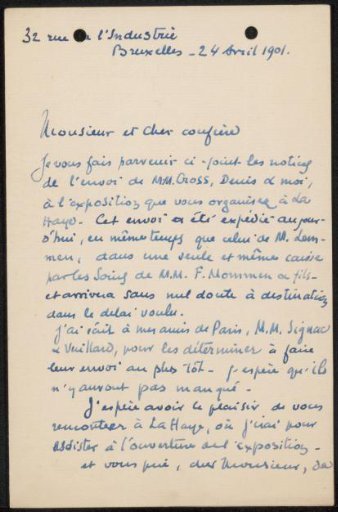 32 rue de l'Industrie
Bruxelles - 24 Avril 1901.
Monsieur et cher confrère
Je vous fais parvenir ci-joint les notices
de l'envoi de MM. CROSS, Denis & moi,
à l'exposition que vous organisez à La
Haye. Cet envoi a été expédié aujour-
d'hui, en même temps que celui de M. Lem-
men, dans une seule et même caisse
par les soins de M.M. F. Mommen & fils -
et arrivera sans nul doute à destination
dans le délai voulu.
J'ai écrit à mes amis de Paris, M.M. Signac
& Vuillard, pour les déterminer à faire
leur envoi au plus tôt. J'espère qu'ils
n'y auront pas manqué.
J'espère avoir le plaisir de vous
rencontrer à La Haye, où j'irai pour
assister à l'ouverture de l'exposition -
et vous prie, cher Monsieur, de